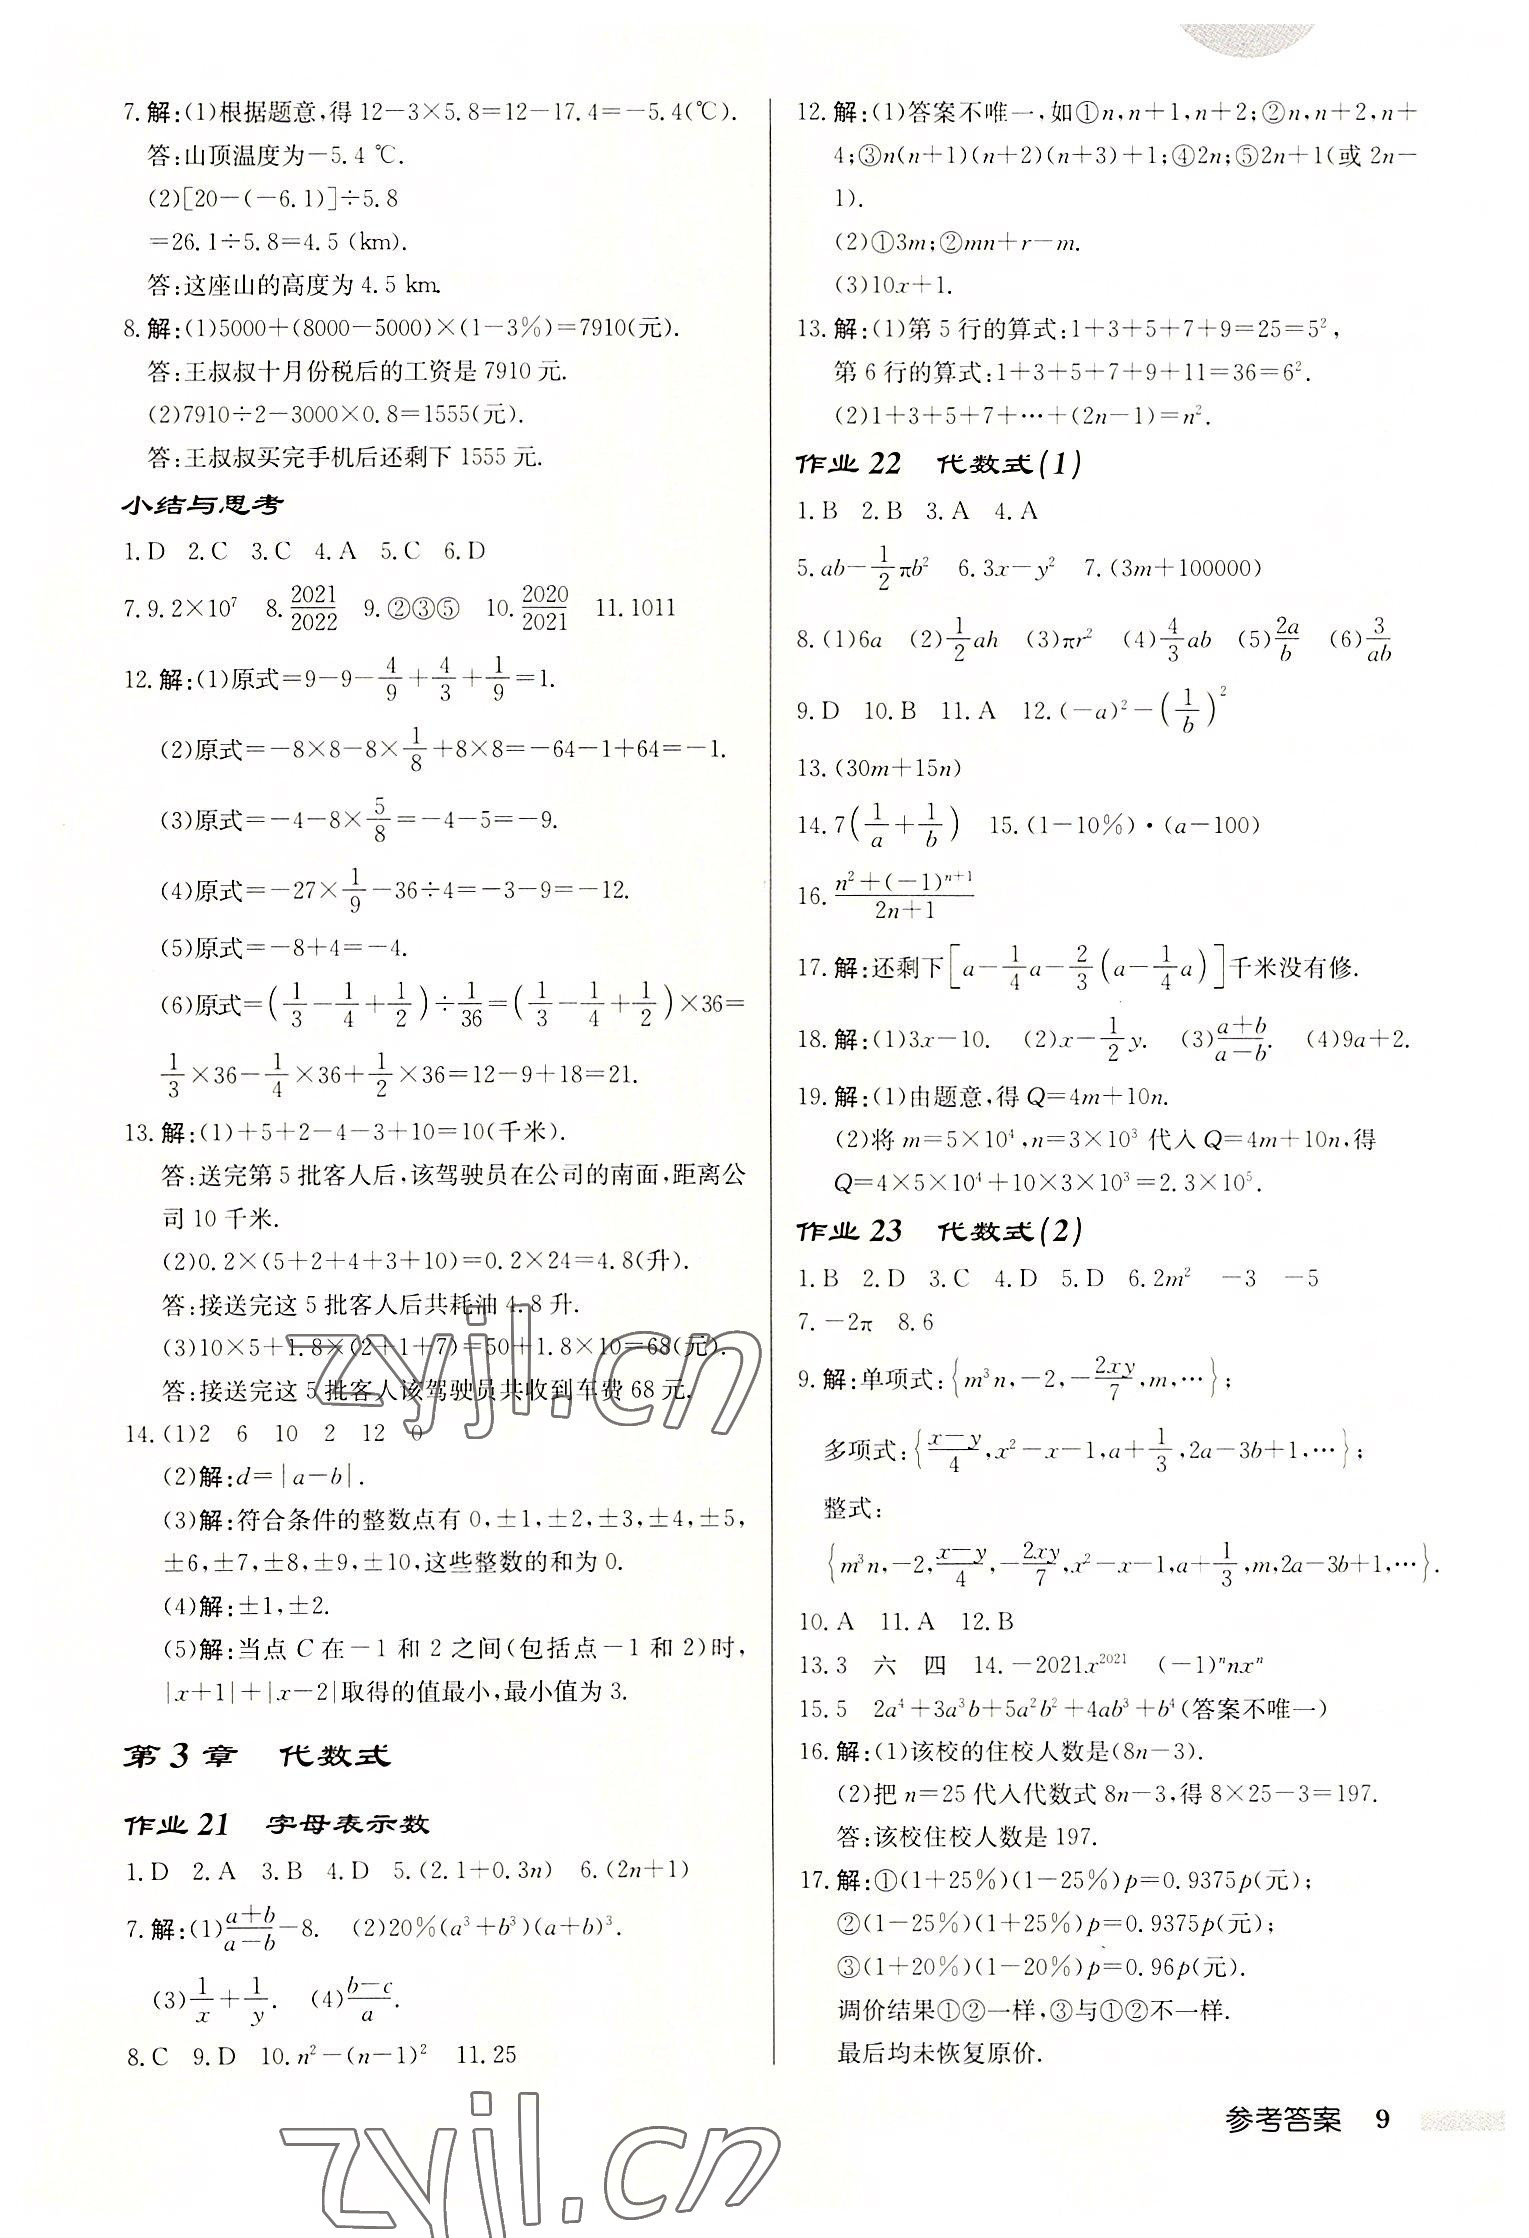 7. 解:(1)根据题意,得 12-3×5.8=12-17.4=-5.4(℃).
答:山顶温度为-5.4 ℃.
(2)[20-(-6.1)]÷5.8
=26.1÷5.8=4.5 (km).
答:这座山的高度为 4.5 km.
8. 解:(1)5000+(8000-5000)×(1-3%)=7910(元).
答:王叔叔十月份税后的工资是 7910 元.
(2)7910÷2-3000×0.8=1555(元).
答:王叔叔买完手机后还剩下 1555 元.
小结与思考
1. D 2. C 3. C 4. A 5. C 6. D
7. 9.2×10⁷ 8. 2021/2022 9. ②③⑤ 10. 2020/2021 11. 1011
12. 解:(1)原式=9-9-4/9+4/3+1/9=1.
(2)原式=-8×8-8×1/8+8×8=-64-1+64=-1.
(3)原式=-4-8×5/8=-4-5=-9.
(4)原式=-27×1/9-36÷4=-3-9=-12.
(5)原式=-8+4=-4.
(6)原式=(1/3-1/4+1/2)÷1/36=(1/3-1/4+1/2)×36=
1/3×36-1/4×36+1/2×36=12-9+18=21.
13. 解:(1)+5+2-4-3+10=10(千米).
答:送完第 5 批客人后,该驾驶员在公司的南面,距离公
司 10 千米.
(2)0.2×(5+2+4+3+10)=0.2×24=4.8(升).
答:接送完这 5 批客人后共耗油 4.8 升.
(3)10×5+1.8×(2+1+7)=50+1.8×10=68(元).
答:接送完这 5 批客人该驾驶员共收到车费 68 元.
14. (1)2 6 10 2 12 0
(2)解:d=|a-b|.
(3)解:符合条件的整数点有 0,±1,±2,±3,±4,±5,
±6,±7,±8,±9,±10,这些整数的和为 0.
(4)解:±1,±2.
(5)解:当点 C 在-1 和 2 之间(包括点-1 和 2)时,
|x+1|+|x-2|取得的值最小,最小值为 3.
第 3 章 代数式
作业 21 字母表示数
1. D 2. A 3. B 4. D 5. (2.1+0.3n) 6. (2n+1)
7. 解:(1)(a+b)/(a-b)-8. (2)20%(a³+b³)(a+b)³.
(3)1/x+1/y. (4)(b-c)/a.
8. C 9. D 10. n²-(n-1)² 11. 25
12. 解:(1)答案不唯一,如①n,n+1,n+2;②n,n+2,n+
4;③n(n+1)(n+2)(n+3)+1;④2n;⑤2n+1(或 2n-
1).
(2)①3m;②mn+r-m.
(3)10x+1.
13. 解:(1)第 5 行的算式:1+3+5+7+9=25=5²,
第 6 行的算式:1+3+5+7+9+11=36=6².
(2)1+3+5+7+…+(2n-1)=n².
作业 22 代数式(1)
1. B 2. B 3. A 4. A
5. ab-1/2πb² 6. 3x-y² 7. (3m+100000)
8. (1)6a (2)1/2ah (3)πr² (4)4/3ab (5)2a/b (6)3/ab
9. D 10. B 11. A 12. (-a)²-(1/b)²
13. (30m+15n)
14. 7(1/a+1/b) 15. (1-10%)·(a-100)
16. (n²+(-1)ⁿ⁺¹)/(2n+1)
17. 解:还剩下[a-1/4a-2/3(a-1/4a)]千米没有修.
18. 解:(1)3x-10. (2)x-1/2y. (3)(a+b)/(a-b). (4)9a+2.
19. 解:(1)由题意,得 Q=4m+10n.
(2)将 m=5×10⁴,n=3×10³ 代入 Q=4m+10n,得
Q=4×5×10⁴+10×3×10³=2.3×10⁵.
作业 23 代数式(2)
1. B 2. D 3. C 4. D 5. D 6. 2m² -3 -5
7. -2π 8. 6
9. 解:单项式:{m³n,-2,-2xy/7,m,…};
多项式:{(x-y)/4,x²-x-1,a+1/3,2a-3b+1,…};
整式:
{m³n,-2,(x-y)/4,-2xy/7,x²-x-1,a+1/3,m,2a-3b+1,…}.
10. A 11. A 12. B
13. 3 六 四 14. -2021x²⁰²¹ (-1)ⁿnxⁿ
15. 5 2a⁴+3a³b+5a²b²+4ab³+b⁴(答案不唯一)
16. 解:(1)该校的住校人数是(8n-3).
(2)把 n=25 代入代数式 8n-3,得 8×25-3=197.
答:该校住校人数是 197.
17. 解:①(1+25%)(1-25%)p=0.9375p(元);
②(1-25%)(1+25%)p=0.9375p(元);
③(1+20%)(1-20%)p=0.96p(元).
调价结果①②一样,③与①②不一样.
最后均未恢复原价.
参考答案 9
zyjl.cn
zyjl.cn